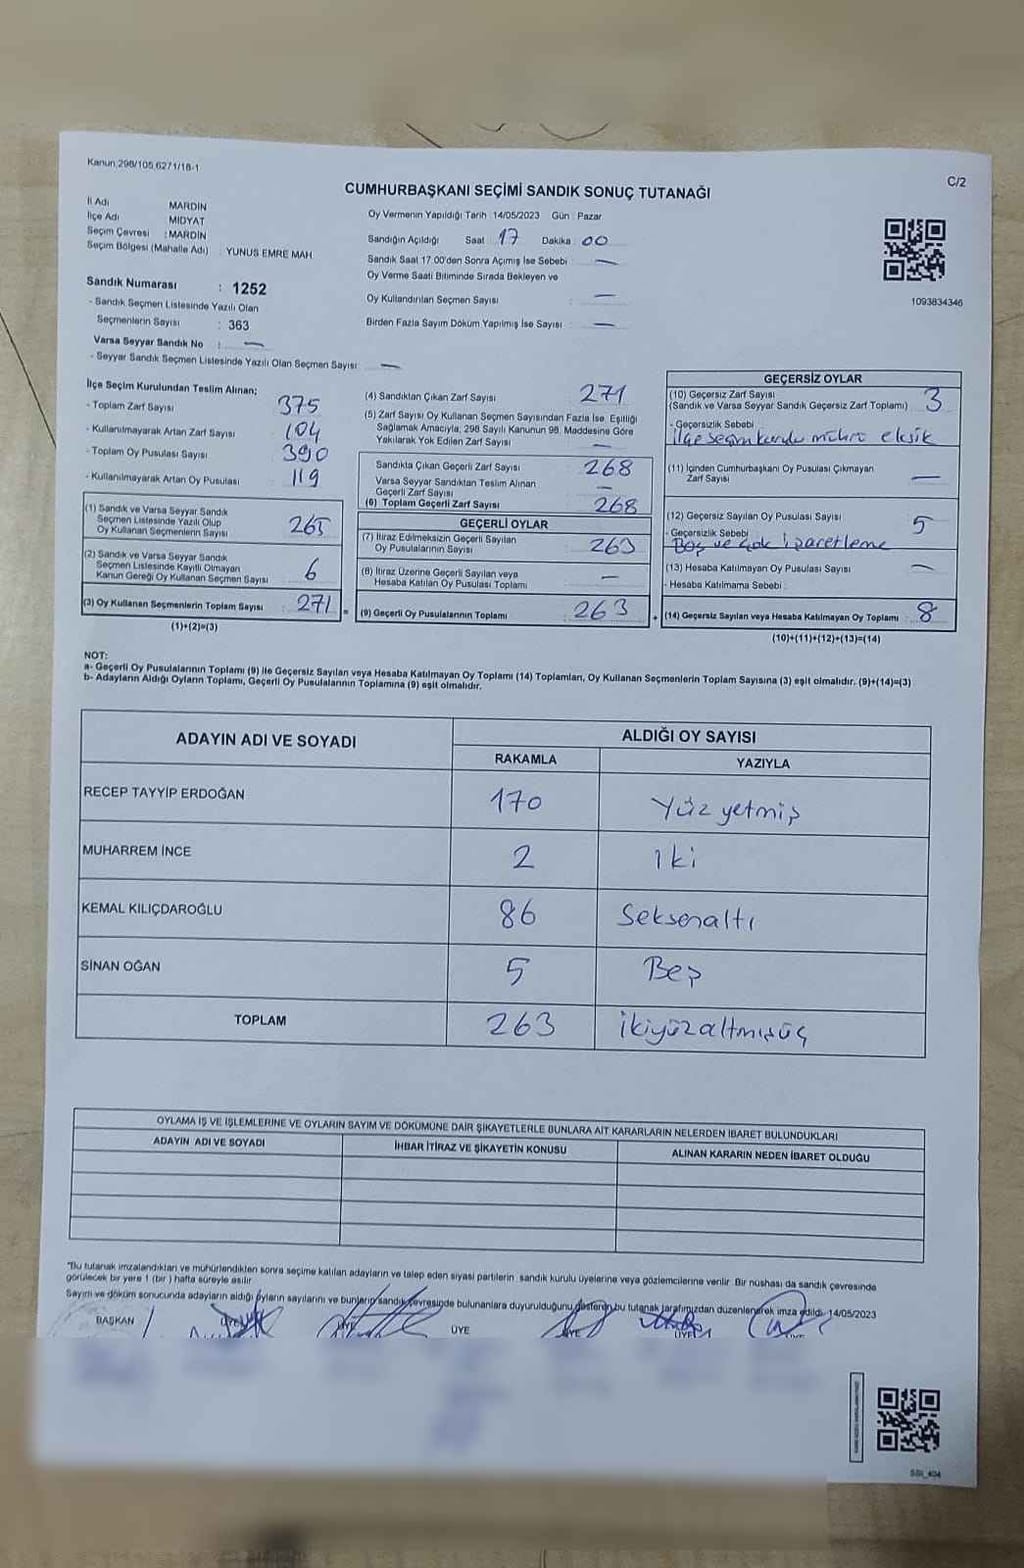 Kanun:298/105,6271/18-1
C/2
CUMHURBAŞKANI SEÇİMİ SANDIK SONUÇ TUTANAĞI
İl Adı MARDİN
İlçe Adı MİDYAT
Seçim Çevresi : MARDİN
Seçim Bölgesi (Mahalle Adı) : YUNUS EMRE MAH
Sandık Numarası : 1252
- Sandık Seçmen Listesinde Yazılı Olan
Seçmenlerin Sayısı : 363
Varsa Seyyar Sandık No : —
- Seyyar Sandık Seçmen Listesinde Yazılı Olan Seçmen Sayısı : —
Oy Vermenin Yapıldığı Tarih 14/05/2023 Gün Pazar
Sandığın Açıldığı Saat 17 Dakika 00
Sandık Saat 17.00'den Sonra Açılmış İse Sebebi —
Oy Verme Saati Bitiminde Sırada Bekleyen ve
Oy Kullandırılan Seçmen Sayısı : —
Birden Fazla Sayım Döküm Yapılmış İse Sayısı : —
1093834346
İlçe Seçim Kurulundan Teslim Alınan;
- Toplam Zarf Sayısı 375
- Kullanılmayarak Artan Zarf Sayısı : 104
- Toplam Oy Pusulası Sayısı 390
- Kullanılmayarak Artan Oy Pusulası 119
(1) Sandık ve Varsa Seyyar Sandık
Seçmen Listesinde Yazılı Olup
Oy Kullanan Seçmenlerin Sayısı : 265
(2) Sandık ve Varsa Seyyar Sandık
Seçmen Listesinde Kayıtlı Olmayan
Kanun Gereği Oy Kullanan Seçmen Sayısı : 6
(3) Oy Kullanan Seçmenlerin Toplam Sayısı : 271 =
(1)+(2)=(3)
(4) Sandıktan Çıkan Zarf Sayısı 271
(5) Zarf Sayısı Oy Kullanan Seçmen Sayısından Fazla İse Eşitliği
Sağlamak Amacıyla, 298 Sayılı Kanunun 98. Maddesine Göre
Yakılarak Yok Edilen Zarf Sayısı : —
Sandıkta Çıkan Geçerli Zarf Sayısı : 268
Varsa Seyyar Sandıktan Teslim Alınan
Geçerli Zarf Sayısı : —
(6) Toplam Geçerli Zarf Sayısı : 268
GEÇERLİ OYLAR
(7) İtiraz Edilmeksizin Geçerli Sayılan
Oy Pusulalarının Sayısı : 263
(8) İtiraz Üzerine Geçerli Sayılan veya
Hesaba Katılan Oy Pusulası Toplamı : —
(9) Geçerli Oy Pusulalarının Toplamı : 263 +
GEÇERSİZ OYLAR
(10) Geçersiz Zarf Sayısı
(Sandık ve Varsa Seyyar Sandık Geçersiz Zarf Toplamı) : 3
- Geçersizlik Sebebi
ilçe seçim kurulu mührü eksik
(11) İçinden Cumhurbaşkanı Oy Pusulası Çıkmayan
Zarf Sayısı : —
(12) Geçersiz Sayılan Oy Pusulası Sayısı 5
- Geçersizlik Sebebi
Boş ve çok işaretleme
(13) Hesaba Katılmayan Oy Pusulası Sayısı : —
- Hesaba Katılmama Sebebi :
(14) Geçersiz Sayılan veya Hesaba Katılmayan Oy Toplamı : 8
(10)+(11)+(12)+(13)=(14)
NOT:
a- Geçerli Oy Pusulalarının Toplamı (9) ile Geçersiz Sayılan veya Hesaba Katılmayan Oy Toplamı (14) Toplamları, Oy Kullanan Seçmenlerin Toplam Sayısına (3) eşit olmalıdır. (9)+(14)=(3)
b- Adayların Aldığı Oyların Toplamı, Geçerli Oy Pusulalarının Toplamına (9) eşit olmalıdır.
ADAYIN ADI VE SOYADI ALDIĞI OY SAYISI
RAKAMLA YAZIYLA
RECEP TAYYİP ERDOĞAN 170 Yüz yetmiş
MUHARREM İNCE 2 iki
KEMAL KILIÇDAROĞLU 86 Seksenaltı
SİNAN OĞAN 5 Beş
TOPLAM 263 ikiyüzaltmışüç
OYLAMA İŞ VE İŞLEMLERİNE VE OYLARIN SAYIM VE DÖKÜMÜNE DAİR ŞİKAYETLERLE BUNLARA AİT KARARLARIN NELERDEN İBARET BULUNDUKLARI
ADAYIN ADI VE SOYADI İHBAR İTİRAZ VE ŞİKAYETİN KONUSU ALINAN KARARIN NEDEN İBARET OLDUĞU
*Bu tutanak imzalandıktan ve mühürlendikten sonra seçime katılan adayların ve talep eden siyasi partilerin sandık kurulu üyelerine veya gözlemcilerine verilir. Bir nüshası da sandık çevresinde
görülecek bir yere 1 (bir) hafta süreyle asılır
Sayım ve döküm sonucunda adayların aldığı oyların sayılarını ve bunların sandık çevresinde bulunanlara duyurulduğunu gösteren bu tutanak tarafımızdan düzenlenerek imza edildi. 14/05/2023
BAŞKAN ÜYE ÜYE ÜYE